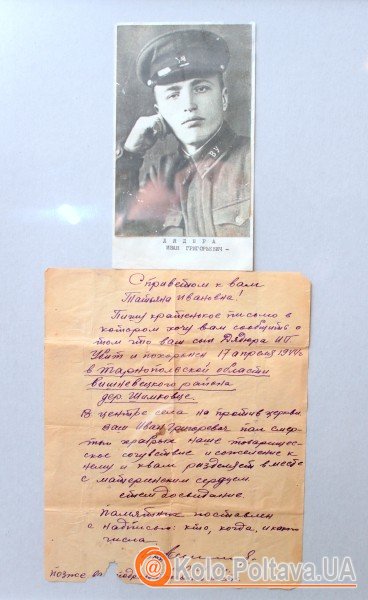 ВУ
ДЯДЮРА
ИВАН ГРИГОРЬЕВИЧ —
С приветом к вам
Татьяна Ивановна!
Пишу кратенькое письмо в
котором хочу вам сообщить о
том что ваш сын Дядюра ИГ
Убит и похоронен 17 апреля 1944г
в Тарнопольской области
вишневецкого района
дер. Шимковце.
В центре села на против церкви
Ваш Иван Григоревич пал смер
тью храбрых наше товарищес
ское сочувствие и сожеление к
нему и к вам разделяет в месте
с материнским сердцем
стем досвидание.
памятник поставлен
с надписью: кто, когда, и како
числа.
позже
@ Kolo.Poltava.UA